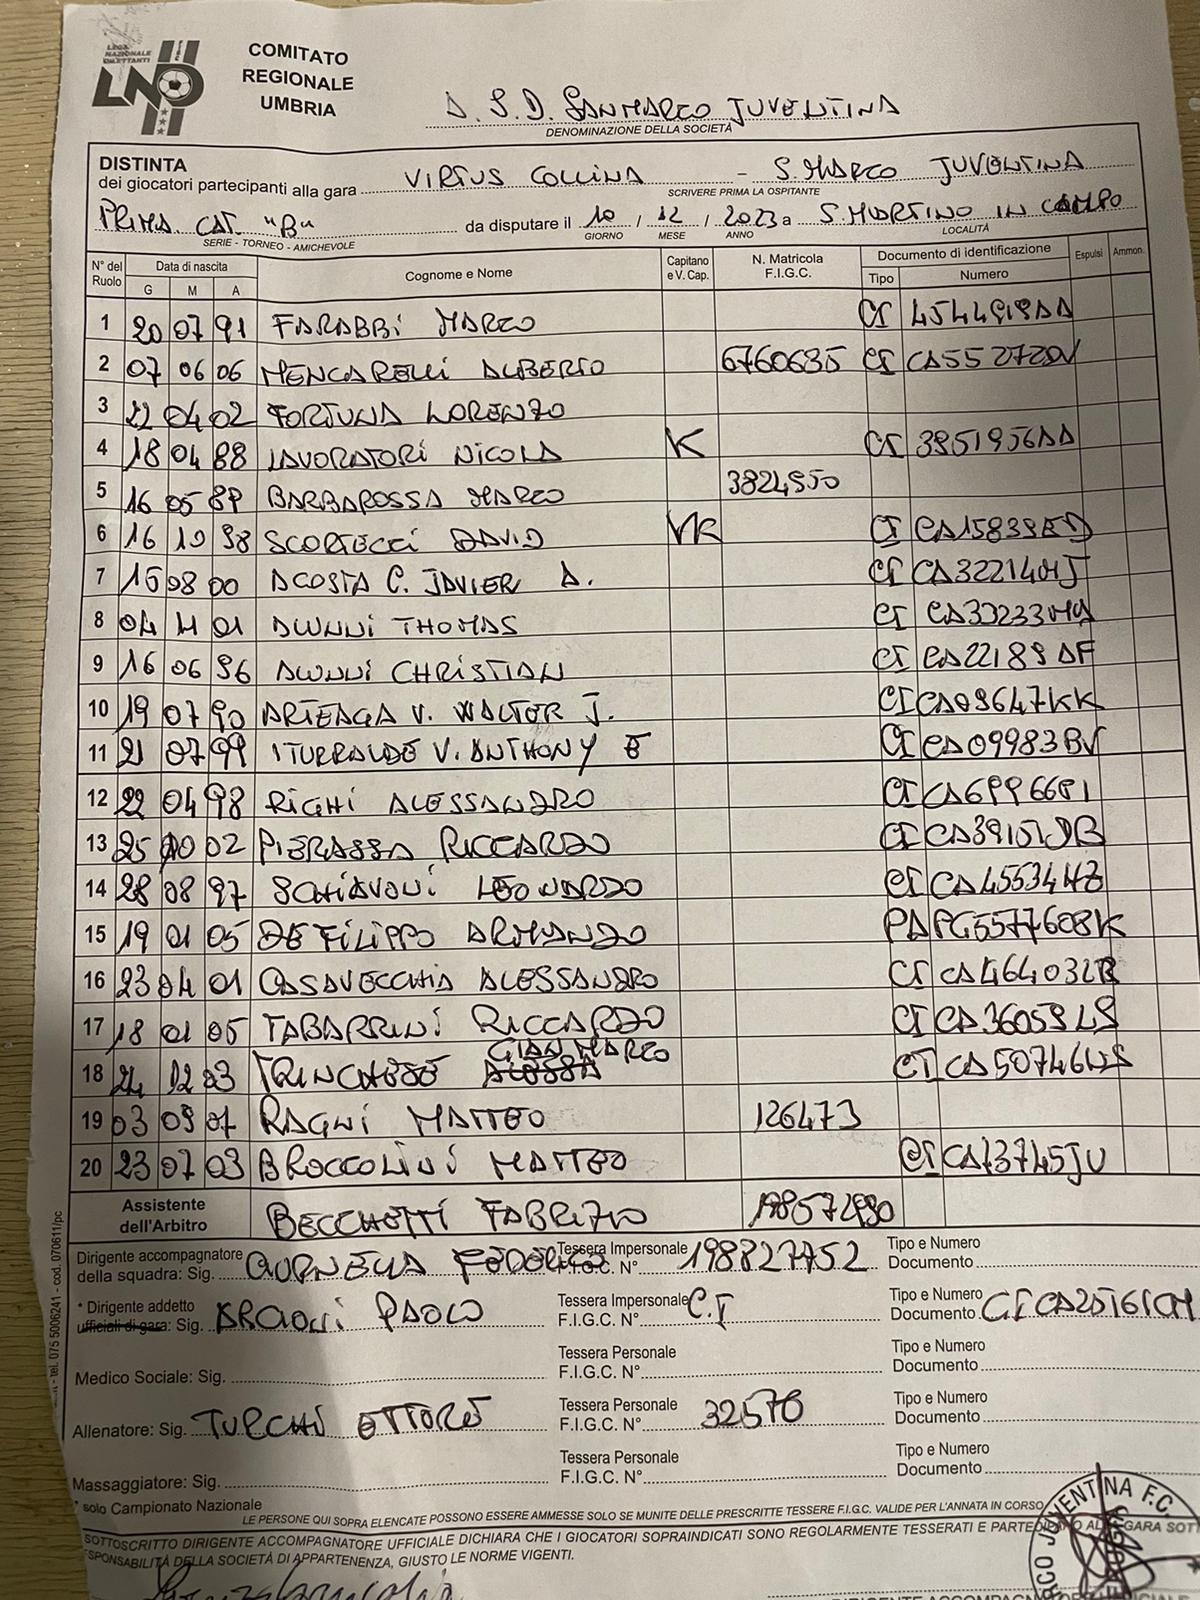 LEGA NAZIONALE DILETTANTI
LND
COMITATO
REGIONALE
UMBRIA
A.S.D. SANMARCO JUVENTINA
DENOMINAZIONE DELLA SOCIETÀ
DISTINTA
dei giocatori partecipanti alla gara VIRTUS COLLINA - S. MARCO JUVENTINA
SCRIVERE PRIMA LA OSPITANTE
PRIMA CAT. "B" da disputare il 10 / 12 / 2023 a S. MARTINO IN CAMPO
SERIE - TORNEO - AMICHEVOLE GIORNO MESE ANNO LOCALITÀ
N° del Ruolo Data di nascita G M A Cognome e Nome Capitano e V. Cap. N. Matricola F.I.G.C. Documento di identificazione Tipo Numero Espulsi Ammon.
1 20 07 91 FARABBI MARCO CI 4544919AA
2 07 06 06 MENCARELLI ALBERTO 6760635 CI
3 22 04 02 FORTUNA LORENZO
4 18 04 88 LAVORATORI NICOLA K CI 3851956AA
5 16 05 89 BARBAROSSA MARCO 3824950
6 16 10 98 SCORTECCI DAVID VK CI
7 15 08 00 ACOSTA C. JAVIER A. CI
8 04 11 01 ALUNNI THOMAS CI
9 16 06 96 ALUNNI CHRISTIAN CI CA22189AF
10 19 07 90 ARTEAGA V. WALTER J. CI CA09647KK
11 21 07 99 ITURRALDE V. ANTHONY E CI CA09983BV
12 22 04 98 RIGHI ALESSANDRO CI
13 25 02 PIERASSA RICCARDO CI
14 28 08 97 SCHIAVONI LEONARDO CI CA45534HZ
15 19 01 05 DE FILIPPO ARMANDO PA PG5577608K
16 23 04 01 CASAVECCHIA ALESSANDRO CI
17 18 01 05 TABARRINI RICCARDO CI CA36059LS
18 12 03 TRINCHESE GIANMARCO CI
19 03 09 07 RAGNI MATTEO 126473
20 23 07 03 BROCCOLINI MATTEO CI CA13745JU
Assistente dell'Arbitro BECCHETTI FABRIZIO
Dirigente accompagnatore della squadra: Sig. Tessera Impersonale F.I.G.C. N° 198827752 Tipo e Numero Documento
* Dirigente addetto ufficiali di gara: Sig. PAOLO Tessera Impersonale F.I.G.C. N° C.I Tipo e Numero Documento
Medico Sociale: Sig. Tessera Personale F.I.G.C. N° Tipo e Numero Documento
Allenatore: Sig. TURCHI ETTORE Tessera Personale F.I.G.C. N° 32570 Tipo e Numero Documento
Massaggiatore: Sig. Tessera Personale F.I.G.C. N° Tipo e Numero Documento
* solo Campionato Nazionale
LE PERSONE QUI SOPRA ELENCATE POSSONO ESSERE AMMESSE SOLO SE MUNITE DELLE PRESCRITTE TESSERE F.I.G.C. VALIDE PER L'ANNATA IN CORSO
SOTTOSCRITTO DIRIGENTE ACCOMPAGNATORE UFFICIALE DICHIARA CHE I GIOCATORI SOPRAINDICATI SONO REGOLARMENTE TESSERATI E GARA SOTT
SPONSABILITÀ DELLA SOCIETÀ DI APPARTENENZA, GIUSTO LE NORME VIGENTI.
tel. 075 5006241 - cod. 070611/pc